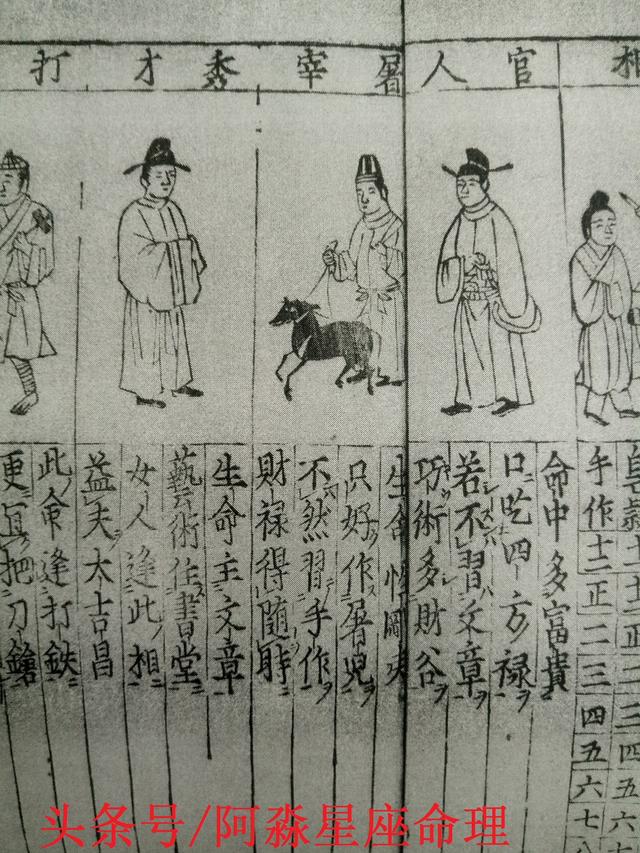 相
官人
屠宰
秀才
打
手作 十二 正 二 三 四 五 六 七 八
命中多富貴
口吃四方禄
若不習文章
巧術多財谷
生
只好作屠児
不然習手作
財禄得随時
生命主文章
藝術住書堂
女人逢此相
益夫大吉昌
此命逢打鉄
更宜把刀鎗
头条号/阿淼星座命理